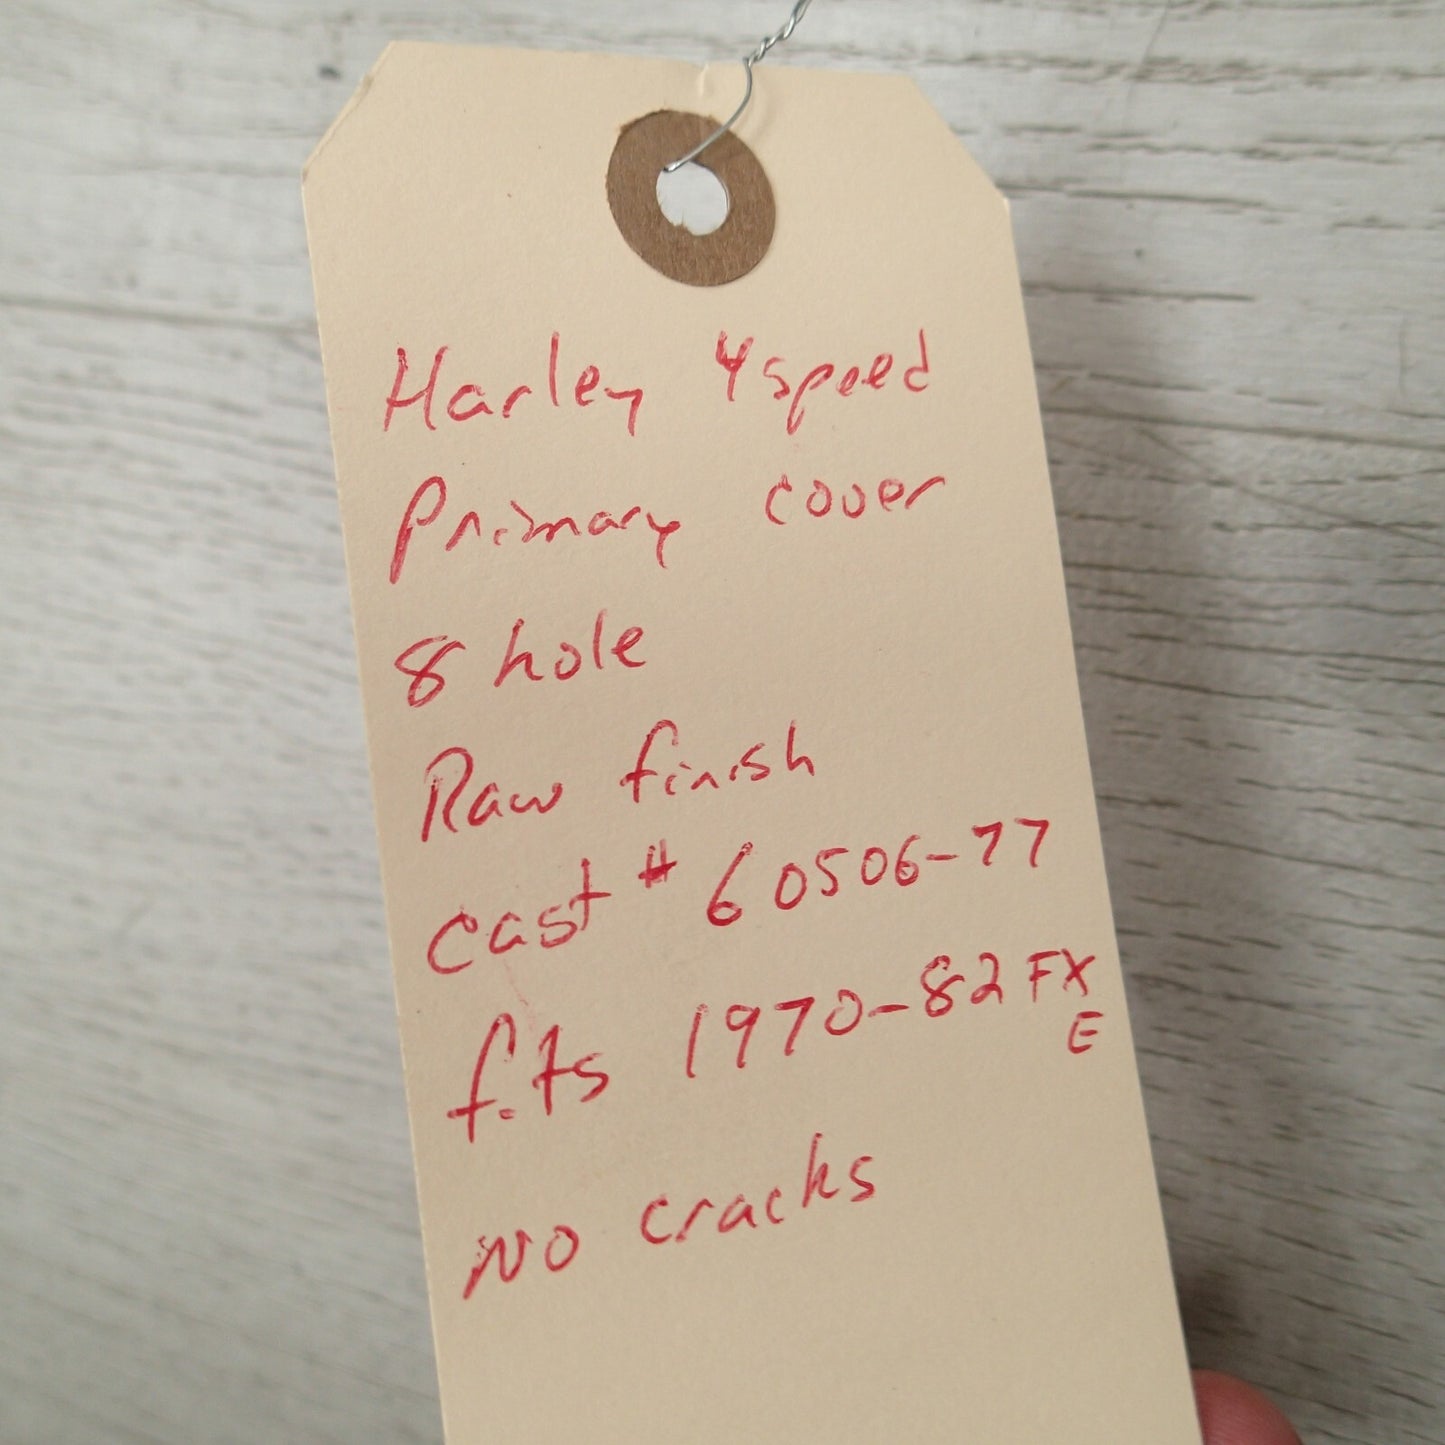 Harley 4 speed
Primary cover
8 hole
Raw finish
cast # 60506-77
fits 1970-82 FX
E
NO cracks